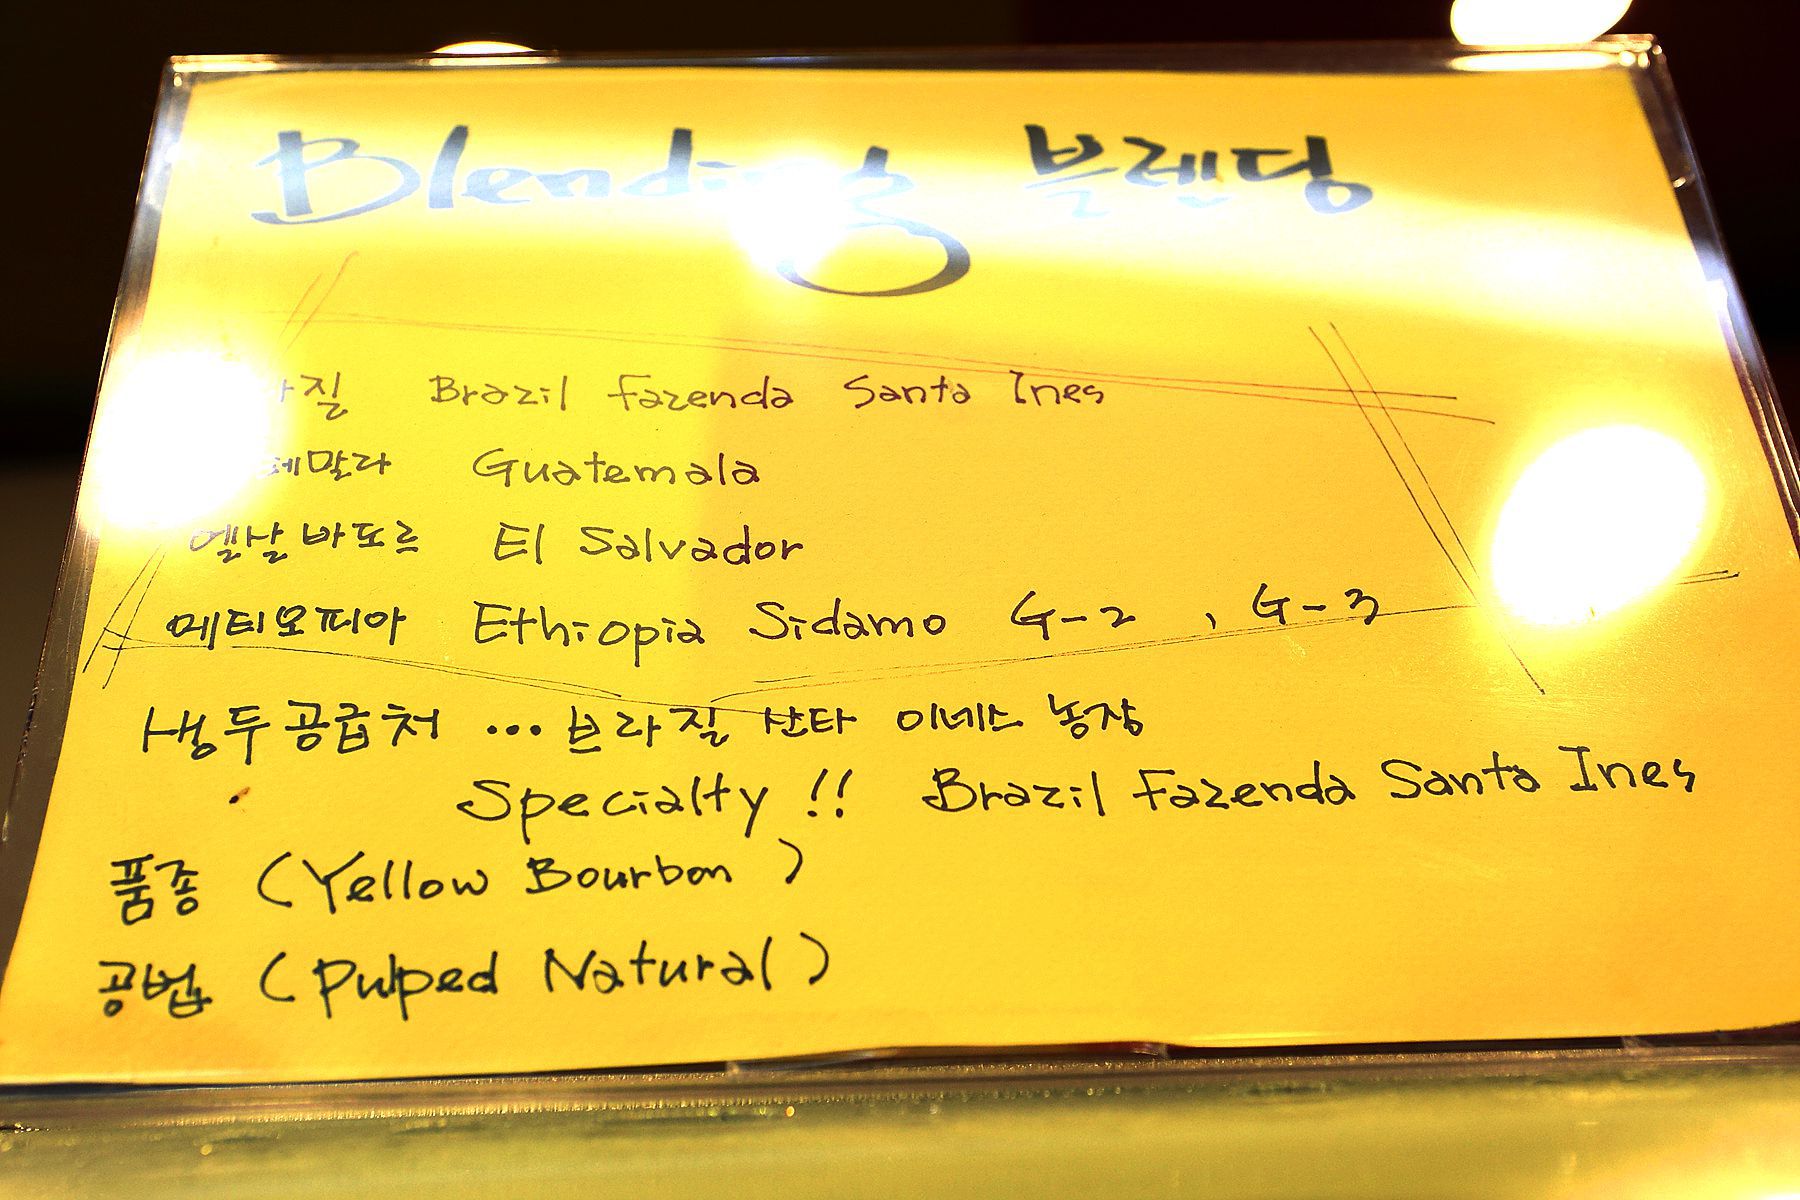 Blending 블렌딩
Brazil Fazenda Santa Ines
Guatemala
엘살바도르 El Salvador
에티오피아 Ethiopia Sidamo G-2 , G-3
생두공급처 ... 브라질 산타 이네스 농장
Specialty !! Brazil Fazenda Santa Ines
품종 (Yellow Bourbon)
공법 (Pulped Natural)